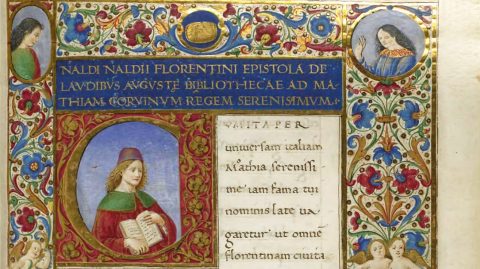 NALDI NALDII FLORENTINI EPISTOLA DE
LAVDIBVS AVGVSTE BIBLIOTHECAE AD MA
THIAM CORVINVM REGEM SERENISIMVM
universam italiam
Mathia serenissi
me iam fama tui
nominis late va
garetur ut omnē
florentinam civita